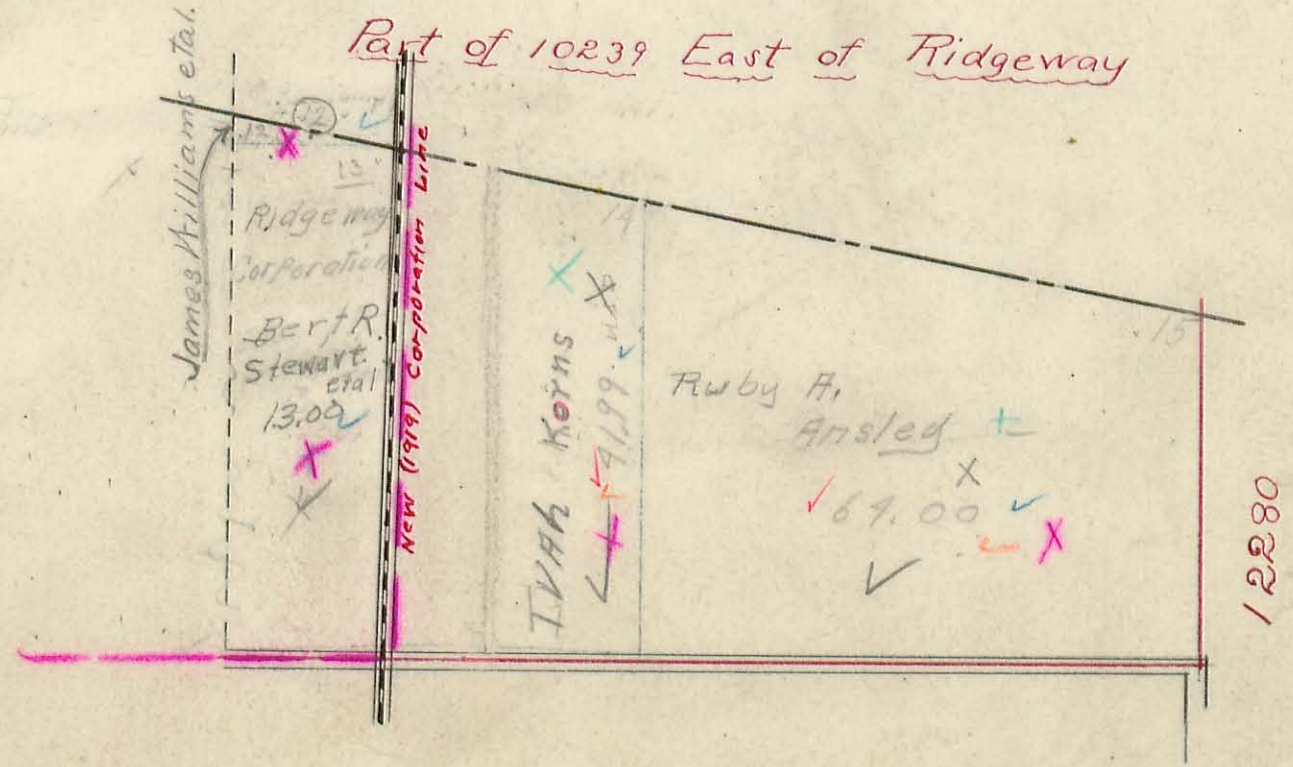 Part of 10239 East of Ridgeway
James Williams etal.
12
13
Ridgeway
Corporation
Bert R.
Stewart
etal
13.00
New (1919) Corporation Line
14
IVAH Korns
41.99
15
Ruby A.
Ansley
64.00
12280